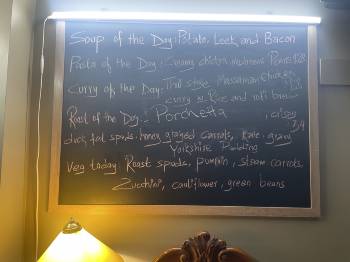 Soup of the Day: Potato, Leek and Bacon
Pasta of the Day: Creamy chicken mushroom Penne $28
Curry of the Day: Thai style Massaman Chicken
curry w Rice and roti $28
Roast of the Day:- Porchetta, crispy
duck fat spuds, honey glazed carrots, Kale, gravy 34
Yorkshire Pudding
Veg today: Roast spuds, pumpkin, steam carrots
Zucchini, cauliflower, green beans